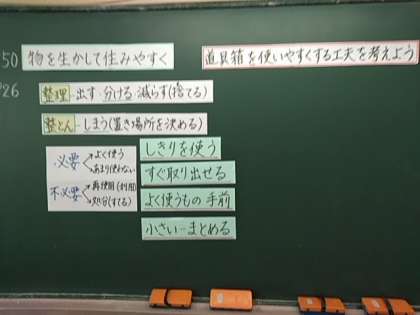 50 物を生かして住みやすく
道具箱を使いやすくする工夫を考えよう
26
整理-出す 分ける 減らす(捨てる)
整とん-しまう(置き場所を決める)
必要 よく使う
あまり使わない
不必要 再使用(利用)
処分(すてる)
しきりを使う
すぐ取り出せる
よく使うもの 手前
小さい-まとめる